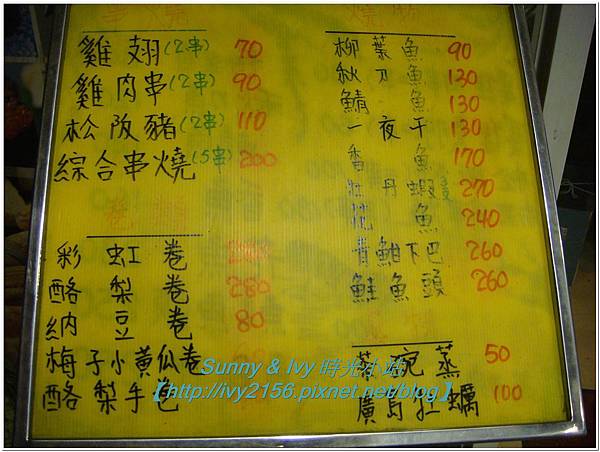 雞翅(2串) 70
雞肉串(2串) 90
松阪豬(2串) 110
綜合串燒(5串) 200
彩虹卷
酪梨卷 280
納豆卷 80
梅子小黃瓜卷
酪梨手卷
柳葉魚 90
秋刀魚 130
鯖魚 130
一夜干 130
香魚 170
牡丹蝦 270
花魚 240
青魽下巴 260
鮭魚頭 260
茶碗蒸 50
廣島牡蠣 100
Sunny & Ivy 時光小站
【http://ivy2156.pixnet.net/blog】